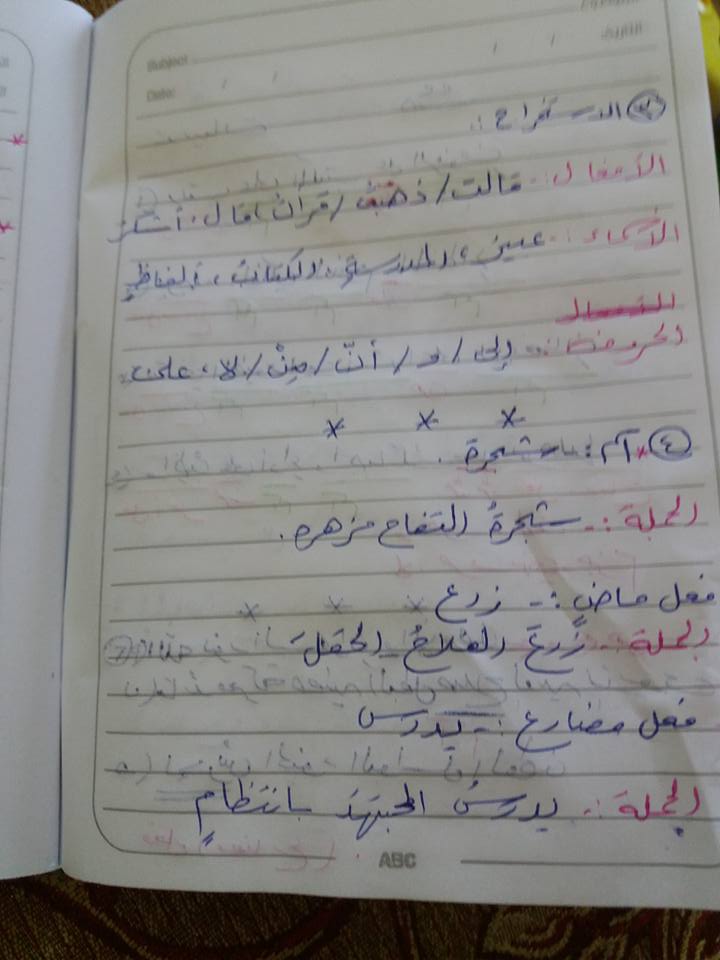 Subject
Date: / /
٣ الاستخراج :
الأفعال :- قالت / ذهبت / قرأت ، قال ، أشكر
الأسماء :- عين ، المدرسة ، الكتاب ، ألفاظ
الحروف :- إلى / و / أنّ / مِنْ / لا ، على
* * *
٤ * اسم :- شجرة
الجملة :- شجرةُ التفاح مزهرة.
فعل ماضٍ :- زرع
* * *
الجملة :- زرعَ الفلاحُ الحقلَ
فعل مضارع :- يدرس
الجملة :- يدرسُ المجتهدُ بانتظامٍ
ABC